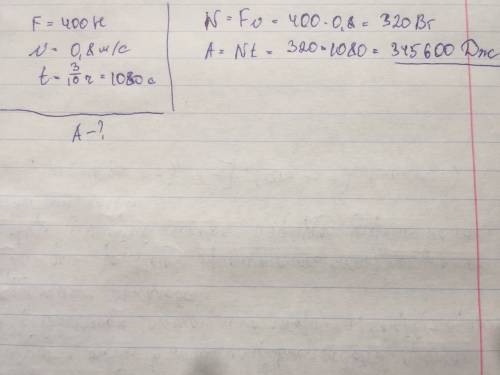 F = 400 Н
v = 0,8 м/с
t = 3/10 ч = 1080 с
A - ?
N = Fv = 400 · 0,8 = 320 Вт
A = Nt = 320 · 1080 = 345600 Дж